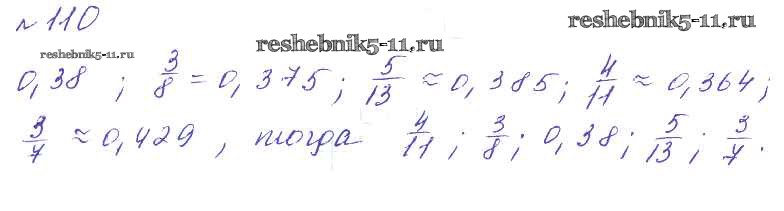 № 110
reshebnik5-11.ru
reshebnik5-11.ru
reshebnik5-11.ru
0,38 ; 3/8 = 0,375; 5/13 ≈ 0,385; 4/11 ≈ 0,364;
3/7 ≈ 0,429 , тогда 4/11 ; 3/8; 0,38; 5/13; 3/7.